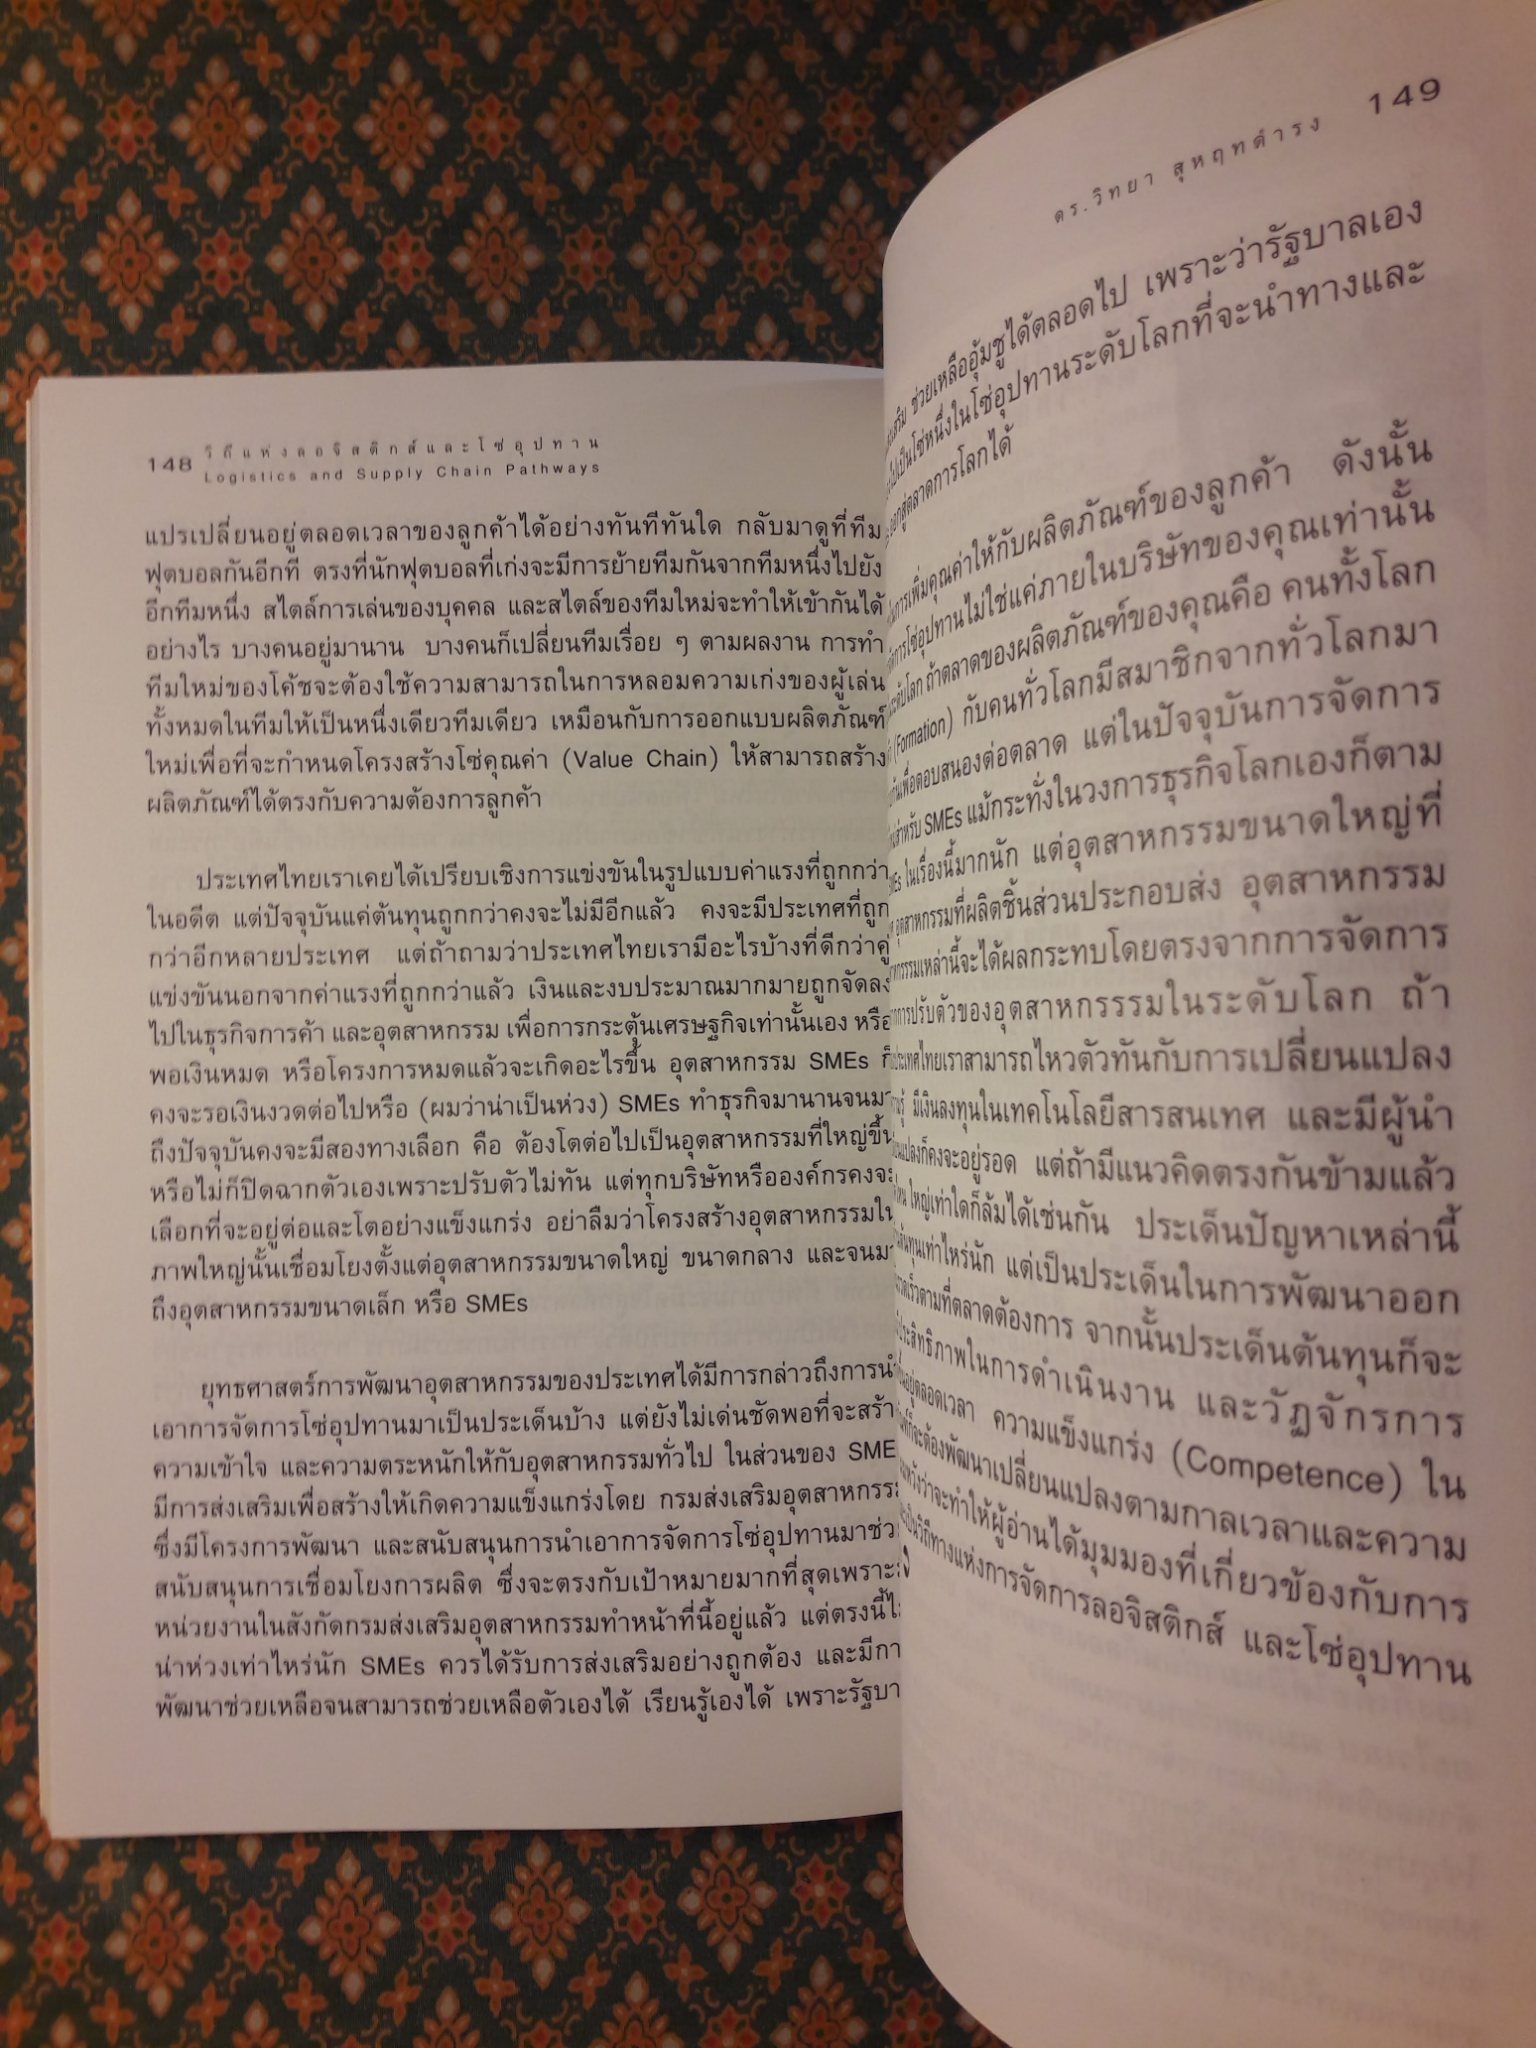 148 วิถีแห่งลอจิสติกส์และโซ่อุปทาน
Logistics and Supply Chain Pathways
แปรเปลี่ยนอยู่ตลอดเวลาของลูกค้าได้อย่างทันทีทันใด กลับมาดูที่ทีม
ฟุตบอลกันอีกที ตรงที่นักฟุตบอลที่เก่งจะมีการย้ายทีมกันจากทีมหนึ่งไปยัง
อีกทีมหนึ่ง สไตล์การเล่นของบุคคล และสไตล์ของทีมใหม่จะทำให้เข้ากันได้
อย่างไร บางคนอยู่มานาน บางคนก็เปลี่ยนทีมเรื่อย ๆ ตามผลงาน การทำ
ทีมใหม่ของโค้ชจะต้องใช้ความสามารถในการหลอมความเก่งของผู้เล่น
ทั้งหมดในทีมให้เป็นหนึ่งเดียวทีมเดียว เหมือนกับการออกแบบผลิตภัณฑ์
ใหม่เพื่อที่จะกำหนดโครงสร้างโซ่คุณค่า (Value Chain) ให้สามารถสร้าง
ผลิตภัณฑ์ได้ตรงกับความต้องการลูกค้า
ประเทศไทยเราเคยได้เปรียบเชิงการแข่งขันในรูปแบบค่าแรงที่ถูกกว่า
ในอดีต แต่ปัจจุบันแค่ต้นทุนถูกกว่าคงจะไม่มีอีกแล้ว คงจะมีประเทศที่ถูก
กว่าอีกหลายประเทศ แต่ถ้าถามว่าประเทศไทยเรามีอะไรบ้างที่ดีกว่าคู่
แข่งขันนอกจากค่าแรงที่ถูกกว่าแล้ว เงินและงบประมาณมากมายถูกจัดลง
ไปในธุรกิจการค้า และอุตสาหกรรม เพื่อการกระตุ้นเศรษฐกิจเท่านั้นเอง หรือ
พอเงินหมด หรือโครงการหมดแล้วจะเกิดอะไรขึ้น อุตสาหกรรม SMEs ก็
คงจะรอเงินงวดต่อไปหรือ (ผมว่าน่าเป็นห่วง) SMEs ทำธุรกิจมานานจนมา
ถึงปัจจุบันคงจะมีสองทางเลือก คือ ต้องโตต่อไปเป็นอุตสาหกรรมที่ใหญ่ขึ้น
หรือไม่ก็ปิดฉากตัวเองเพราะปรับตัวไม่ทัน แต่ทุกบริษัทหรือองค์กรคงจะ
เลือกที่จะอยู่ต่อและโตอย่างแข็งแกร่ง อย่าลืมว่าโครงสร้างอุตสาหกรรมใน
ภาพใหญ่นั้นเชื่อมโยงตั้งแต่อุตสาหกรรมขนาดใหญ่ ขนาดกลาง และจนมา
ถึงอุตสาหกรรมขนาดเล็ก หรือ SMEs
ยุทธศาสตร์การพัฒนาอุตสาหกรรมของประเทศได้มีการกล่าวถึงการนำ
เอาการจัดการโซ่อุปทานมาเป็นประเด็นบ้าง แต่ยังไม่เด่นชัดพอที่จะสร้า
ความเข้าใจ และความตระหนักให้กับอุตสาหกรรมทั่วไป ในส่วนของ SME
มีการส่งเสริมเพื่อสร้างให้เกิดความแข็งแกร่งโดย กรมส่งเสริมอุตสาหกรร
ซึ่งมีโครงการพัฒนา และสนับสนุนการนำเอาการจัดการโซ่อุปทานมาช่ว
สนับสนุนการเชื่อมโยงการผลิต ซึ่งจะตรงกับเป้าหมายมากที่สุดเพราะ
หน่วยงานในสังกัดกรมส่งเสริมอุตสาหกรรมทำหน้าที่นี้อยู่แล้ว แต่ตรงนี้
น่าห่วงเท่าไหร่นัก SMEs ควรได้รับการส่งเสริมอย่างถูกต้อง และมีกา
พัฒนาช่วยเหลือจนสามารถช่วยเหลือตัวเองได้ เรียนรู้เองได้ เพราะรัฐบา
ดร.วิทยา สุหฤทดำรง 149
ช่วยเหลืออุ้มชูได้ตลอดไป เพราะว่ารัฐบาลเอง
เป็นโซ่หนึ่งในโซ่อุปทานระดับโลกที่จะนำทางและ
ออกสู่ตลาดการโลกได้
การเพิ่มคุณค่าให้กับผลิตภัณฑ์ของลูกค้า ดังนั้น
การโซ่อุปทานไม่ใช่แค่ภายในบริษัทของคุณเท่านั้น
ระดับโลก ถ้าตลาดของผลิตภัณฑ์ของคุณคือ คนทั้งโลก
(Formation) กับคนทั่วโลกมีสมาชิกจากทั่วโลกมา
กันเพื่อตอบสนองต่อตลาด แต่ในปัจจุบันการจัดการ
สำหรับ SMEs แม้กระทั่งในวงการธุรกิจโลกเองก็ตาม
ในเรื่องนี้มากนัก แต่อุตสาหกรรมขนาดใหญ่ที่
อุตสาหกรรมที่ผลิตชิ้นส่วนประกอบส่ง อุตสาหกรรม
กรรมเหล่านี้จะได้ผลกระทบโดยตรงจากการจัดการ
การปรับตัวของอุตสาหกรรรมในระดับโลก ถ้า
ประเทศไทยเราสามารถไหวตัวทันกับการเปลี่ยนแปลง
มีเงินลงทุนในเทคโนโลยีสารสนเทศ และมีผู้นำ
แปลงก็คงจะอยู่รอด แต่ถ้ามีแนวคิดตรงกันข้ามแล้ว
ใหญ่เท่าใดก็ล้มได้เช่นกัน ประเด็นปัญหาเหล่านี้
ต้นทุนเท่าไหร่นัก แต่เป็นประเด็นในการพัฒนาออก
รวดเร็วตามที่ตลาดต้องการ จากนั้นประเด็นต้นทุนก็จะ
ประสิทธิภาพในการดำเนินงาน และวัฏจักรการ
อยู่ตลอดเวลา ความแข็งแกร่ง (Competence) ใน
ก็จะต้องพัฒนาเปลี่ยนแปลงตามกาลเวลาและความ
หวังว่าจะทำให้ผู้อ่านได้มุมมองที่เกี่ยวข้องกับการ
เป็นวิถีทางแห่งการจัดการลอจิสติกส์ และโซ่อุปทาน